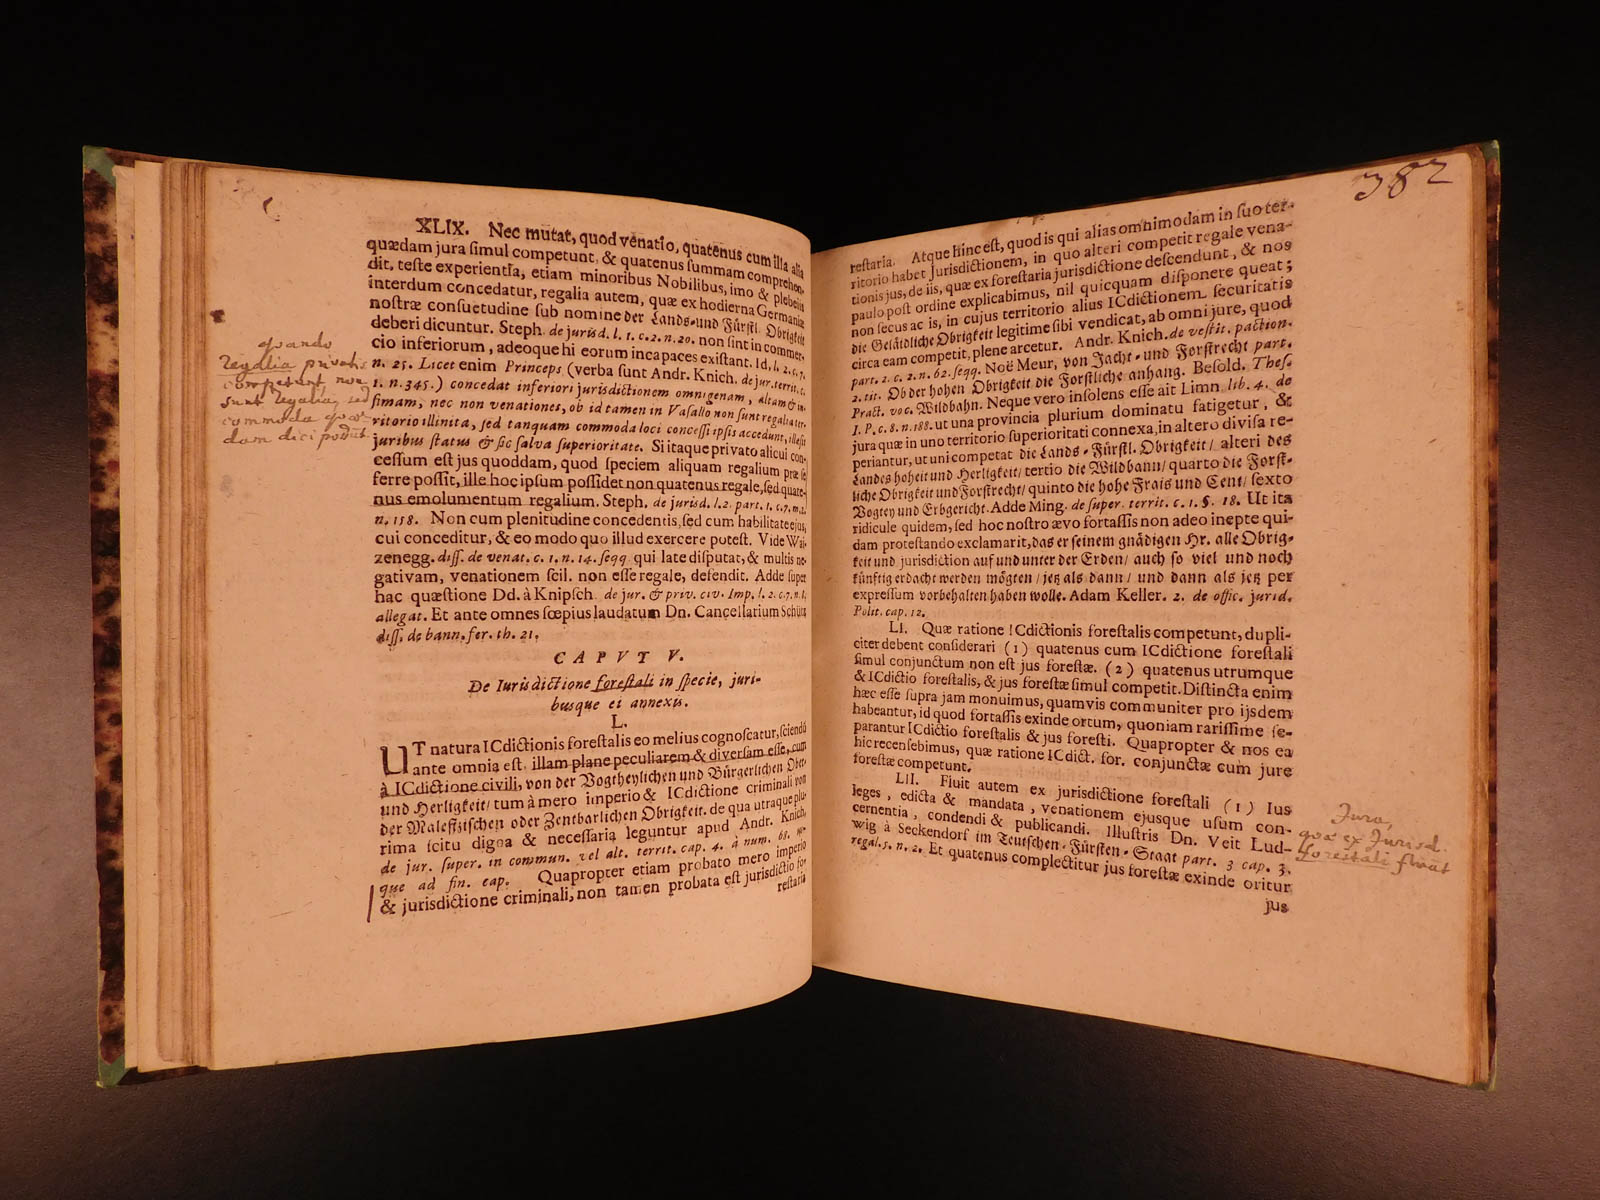 XLIX. Nec mutat, quod venatio, quatenus cum illa alia
quædam jura simul competunt, & quatenus summam comprehen-
dit, teste experientia, etiam minoribus Nobilibus, imo & plebeiis
interdum concedatur, regalia autem, quæ ex hodierna Germaniæ
nostræ consuetudine sub nomine der Lands- und Fürstl. Obrigkeit
deberi dicuntur. Steph. de jurisd. l. 1. c. 2. n. 20. non sint in commer-
cio inferiorum, adeoque hi eorum incapaces existant. Id. l. 2. c. 7.
n. 25. Licet enim Princeps (verba sunt Andr. Knich. de jur. territ. c.
1. n. 345.) concedat inferiori jurisdictionem omnigenam, altam & in-
fimam, nec non venationes, ob id tamen in Vasallo non sunt regalia ter-
ritorio illinita, sed tanquam commoda loci concessi ipsis accedunt, illæsis
juribus status & sic salva superioritate. Si itaque privato alicui con-
cessum est jus quoddam, quod speciem aliquam regalium præ se
ferre possit, ille hoc ipsum possidet non quatenus regale, sed quate-
nus emolumentum regalium. Steph. de jurisd. l. 2. part. 1. c. 7. m. 2.
n. 158. Non cum plenitudine concedentis, sed cum habilitate ejus,
cui conceditur, & eo modo quo illud exercere potest. Vide Wai-
zenegg. diss. de venat. c. 1. n. 14. seqq qui late disputat, & multis ne-
gativam, venationem scil. non esse regale, defendit. Adde super
hac quæstione Dd. à Knipsch. de jur. & priv. civ. Imp. l. 2. c. 7. n. 1.
allegat. Et ante omnes sæpius laudatum Dn. Cancellarium Schütz
diss. de bann. fer. th. 21.
quando
regalia privatis
competunt non
sunt regalia, sed
commoda quæ-
dam dici possunt.
CAPVT V.
De Iurisdictione forestali in specie, juri-
busque et annexis.
L.
UT natura ICdictionis forestalis eo melius cognoscatur, sciendū
ante omnia est, illam plane peculiarem & diversam esse, cum
à ICdictione civili, von der Vogtheylichen und Bürgerlichen Ober-
und Herligkeit/ tum à mero imperio & ICdictione criminali von
der Malefizischen oder Zentbarlichen Obrigkeit. de qua utraque plu-
rima scitu digna & necessaria leguntur apud Andr. Knich.
de jur. super. in commun. vel alt. territ. cap. 4. à num. 68. us-
que ad fin. cap. Quapropter etiam probato mero imperio
& jurisdictione criminali, non tamen probata est jurisdictio fo-
restaria
382
restaria. Atque hinc est, quod is qui alias omnimodam in suo ter-
ritorio habet Jurisdictionem, in quo alteri competit regale vena-
tionis jus, de iis, quæ ex forestaria jurisdictione descendunt, & nos
paulo post ordine explicabimus, nil quicquam disponere queat;
non secus ac is, in cujus territorio alius ICdictionem securitatis
die Gelaidliche Obrigkeit legitime sibi vendicat, ab omni jure, quod
circa eam competit, plene arcetur. Andr. Knich. de vestit. paction.
part. 2. c. 2. n. 62. seqq. Noë Meur, von Jacht- und Forstrecht part.
2. tit. Ob der hohen Obrigkeit die Forstliche anhang. Besold. Thes.
Pract. voc. Wildbahn. Neque vero insolens esse ait Limn. lib. 4. de
I. P. c. 8. n. 188. ut una provincia plurium dominatu fatigetur, &
jura quæ in uno territorio superioritati connexa, in altero divisa re-
periantur, ut uni competat die Lands-Fürstl. Obrigkeit/ alteri des
Landes hoheit und Herligkeit/ tertio die Wildbann/ quarto die Forst-
liche Obrigkeit und Forstrecht/ quinto die hohe Frais und Cent/ sexto
Vogtey und Erbgericht. Adde Ming. de super. territ. c. 1. §. 18. Ut ita
ridicule quidem, sed hoc nostro ævo fortassis non adeo inepte qui-
dam protestando exclamarit, das er seinem gnädigen Hr. alle Obrig-
keit und jurisdiction auf und unter der Erden/ auch so viel und noch
künftig erdacht werden mögten/ jetz als dann/ und dann als jetz per
expressum vorbehalten haben wolle. Adam Keller. 2. de offic. jurid.
Polit. cap. 12.
LI. Quæ ratione ICdictionis forestalis competunt, dupli-
citer debent considerari (1) quatenus cum ICdictione forestali
simul conjunctum non est jus forestæ. (2) quatenus utrumque
& ICdictio forestalis, & jus forestæ simul competit. Distincta enim
hæc esse supra jam monuimus, quamvis communiter pro ijsdem
habeantur, id quod fortassis exinde ortum, quoniam rarissime se-
parantur ICdictio forestalis & jus foresti. Quapropter & nos ea
hic recensebimus, quæ ratione ICdict. for. conjunctæ cum jure
forestæ competunt.
LII. Fluit autem ex jurisdictione forestali (1) Ius
leges, edicta & mandata, venationem ejusque usum con-
cernentia, condendi & publicandi. Illustris Dn. Veit Lud-
wig à Seckendorf im Teutschen-Fürsten-Staat part. 3 cap. 3.
regal. 5. n. 2. Et quatenus complectitur jus forestæ exinde oritur
jus
Jura,
quæ ex Jurisd.
forestali fluūt